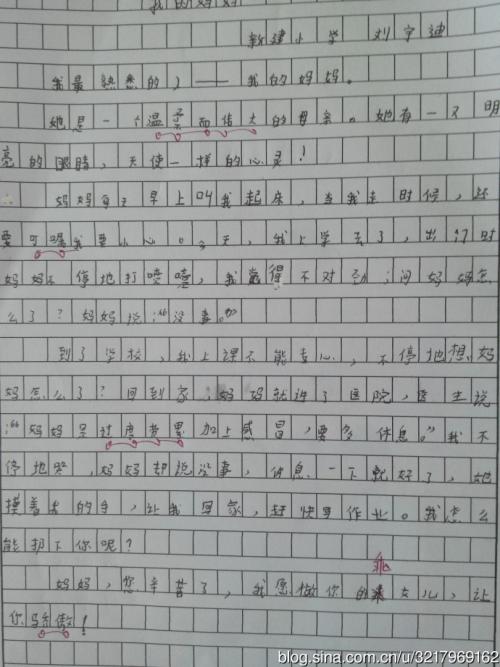 我的妈妈
新建小学 刘宇迪
我最熟悉的人——我的妈妈。
她是一个温柔而伟大的母亲。她有一又明
亮的眼睛，天使一样的心灵！
妈妈每天早上叫我起床，当我走时候，还
要叮嘱我要小心。今天，我上学去了，出门时
妈妈不停地打喷嚏，我觉得不对劲；问妈妈怎
么了？妈妈说：“没事。”
到了学校，我上课不能专心，不停地想妈
妈怎么了？回到家，妈妈就进了医院，医生说
：“妈妈呈过度劳累加上感冒，要多休息。”我不
停地哭，妈妈却说没事，休息一下就好了，她
摸着我的手，让我回家，赶快写作业。我怎么
能抛下你呢？
妈妈，您辛苦了，我愿做你的乖女儿，让
你骄傲！
blog.sina.com.cn/u/3217969162